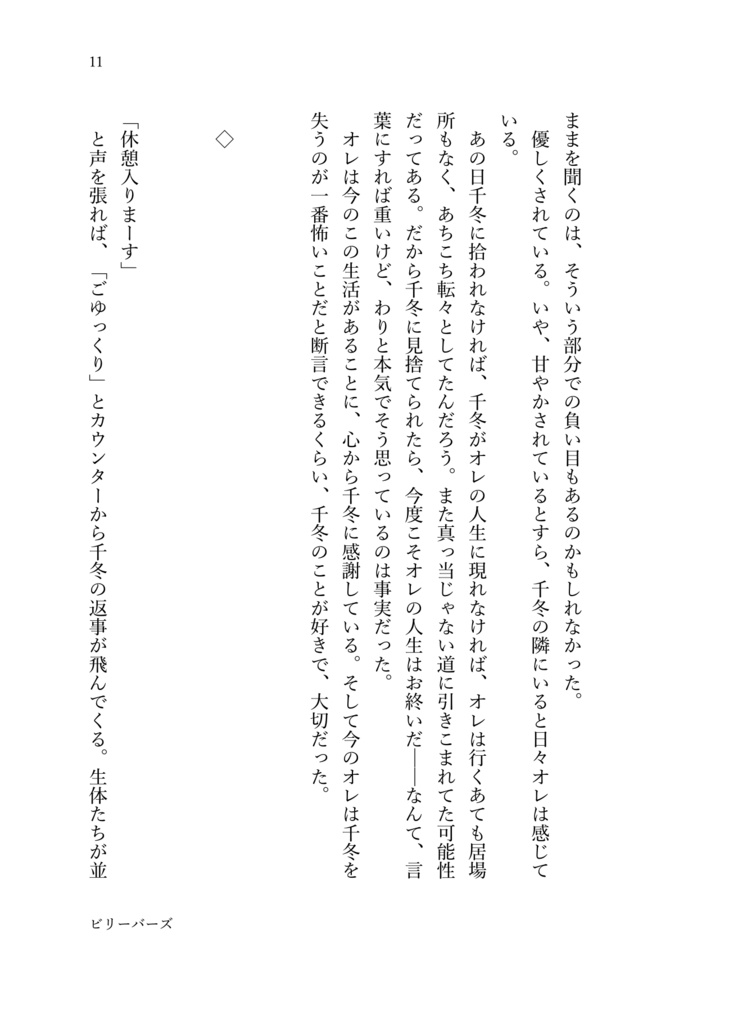 11
ままを聞くのは、そういう部分での負い目もあるのかもしれなかった。
優しくされている。いや、甘やかされているとすら、千冬の隣にいると日々オレは感じて
いる。
あの日千冬に拾われなければ、千冬がオレの人生に現れなければ、オレは行くあても居場
所もなく、あちこち転々としてたんだろう。また真っ当じゃない道に引きこまれてた可能性
だってある。だから千冬に見捨てられたら、今度こそオレの人生はお終いだ――なんて、言
葉にすれば重いけど、わりと本気でそう思っているのは事実だった。
オレは今のこの生活があることに、心から千冬に感謝している。そして今のオレは千冬を
失うのが一番怖いことだと断言できるくらい、千冬のことが好きで、大切だった。
◇
「休憩入りまーす」
と声を張れば、「ごゆっくり」とカウンターから千冬の返事が飛んでくる。生体たちが並
ビリーバーズ